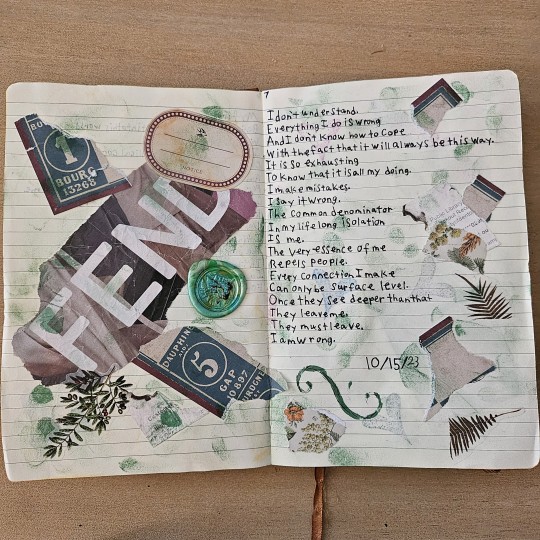 1
BOURG
13263
NOTICE
THE
END
DAUPHINE
5
GAP
10897
7
I don't understand.
Everything I do is wrong
And I don't know how to cope
With the fact that it will always be this way.
It is so exhausting
To know that it is all my doing.
I make mistakes.
I say it wrong.
The common denominator
In my lifelong isolation
Is me.
The very essence of me
Repels people.
Every connection I make
Can only be surface level.
Once they see deeper than that
They leave me.
They must leave.
I am wrong.
10/15/23